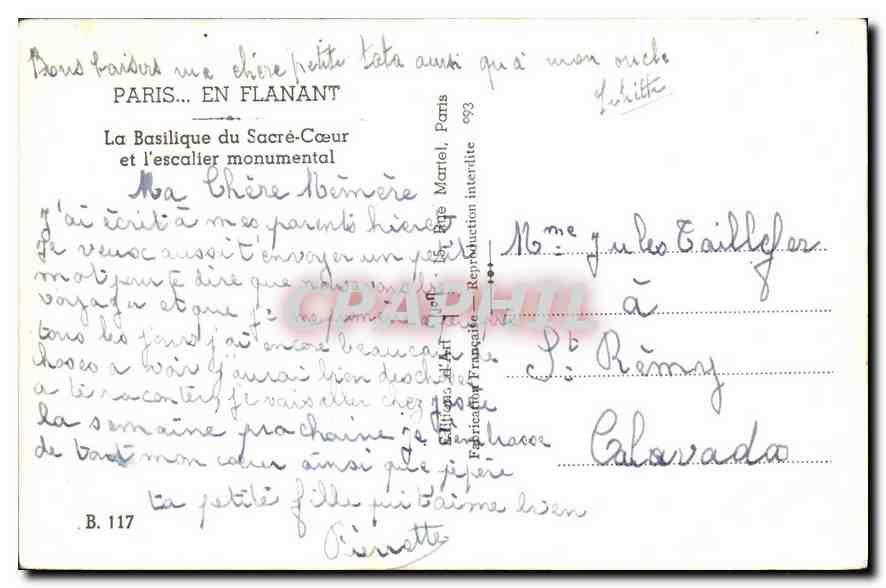 Bons baisers ma chère petite tata ainsi qu'à mon oncle
PARIS... EN FLANANT
La Basilique du Sacré-Cœur
et l'escalier monumental
Ma Chère Mémère
J'ai écrit à mes parents hier et
je veux aussi t'envoyer un petit
mot pour te dire que nous avons bien
voyager et que je me promène
tous les jours j'ai encore beaucoup de
choses a voir j'aurai bien des choses
a te raconter, je vais aller chez
la semaine prochaine je t'embrasse
de tout mon cœur ainsi que pépère
ta petite fille qui t'aime bien
Pierrette
B. 117
Editions d'Art 15, Rue Martel, Paris
Fabrication Française Reproduction interdite 093
Mme Jules Taillefer
à
St Rémy
Calavados
CPAPHIL